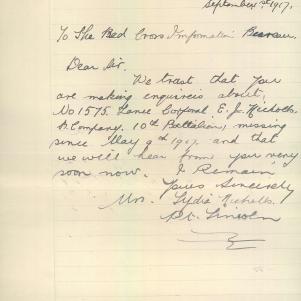 September 1st 1917.
To The Red Cross Information Beureau.
Dear Sir.
We trust that you
are making enquireis about,
No 1575. Lance Corporal E. J. Nicholls.
A. Company. 10th Battalion, missing
since May 9th 1917. and that
we will hear from you very
soon now. I Remain
Yours Sincerely
Mrs. Lydia Nicholls.
Pt. Lincoln